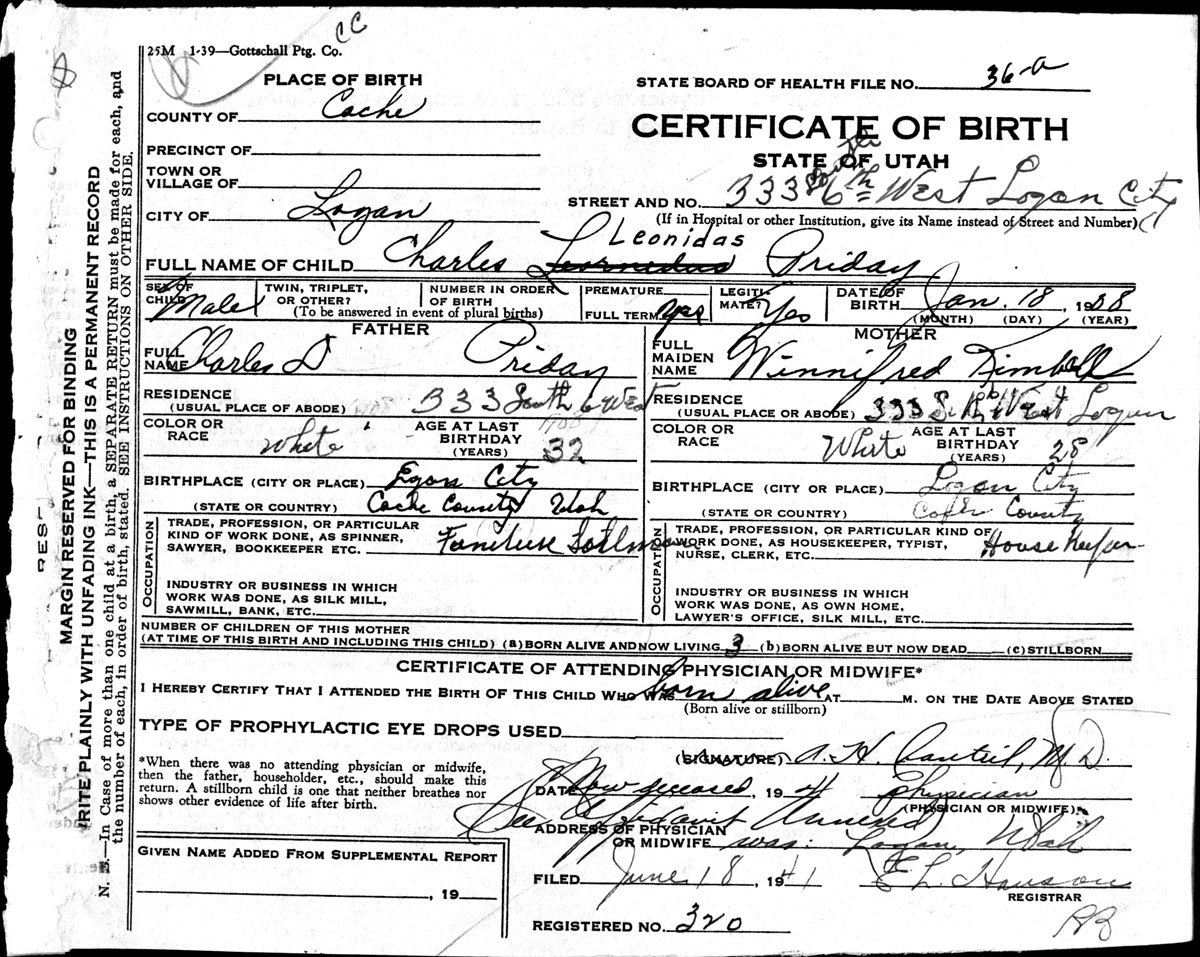 CC
25M 1-39—Gottschall Ptg. Co.
PLACE OF BIRTH
COUNTY OF Cache
PRECINCT OF
TOWN OR
VILLAGE OF
CITY OF Logan
STATE BOARD OF HEALTH FILE NO. 36-a
CERTIFICATE OF BIRTH
STATE OF UTAH
South
STREET AND NO. 333 6th West Logan City
(If in Hospital or other Institution, give its Name instead of Street and Number)
Leonidas
FULL NAME OF CHILD Charles Priday
SEX OF CHILD Male
TWIN, TRIPLET, OR OTHER?
NUMBER IN ORDER OF BIRTH
(To be answered in event of plural births)
PREMATURE
FULL TERM yes
LEGITIMATE? Yes
DATE OF BIRTH Jan. 18, 1908
(MONTH) (DAY) (YEAR)
FATHER
FULL NAME Charles D Priday
RESIDENCE
(USUAL PLACE OF ABODE) 333 South 6 West
COLOR OR RACE White
AGE AT LAST BIRTHDAY (YEARS) 32
BIRTHPLACE (CITY OR PLACE) Logan City
(STATE OR COUNTRY) Cache County Utah
OCCUPATION
TRADE, PROFESSION, OR PARTICULAR
KIND OF WORK DONE, AS SPINNER,
SAWYER, BOOKKEEPER ETC. Furniture
INDUSTRY OR BUSINESS IN WHICH
WORK WAS DONE, AS SILK MILL,
SAWMILL, BANK, ETC.
MOTHER
FULL MAIDEN NAME Winnifred Kimball
RESIDENCE
(USUAL PLACE OF ABODE) 333 S. 6 West Logan
COLOR OR RACE White
AGE AT LAST BIRTHDAY (YEARS) 28
BIRTHPLACE (CITY OR PLACE) Logan City
(STATE OR COUNTRY) Cache County
OCCUPATION
TRADE, PROFESSION, OR PARTICULAR KIND OF
WORK DONE, AS HOUSEKEEPER, TYPIST,
NURSE, CLERK, ETC. House Keeper
INDUSTRY OR BUSINESS IN WHICH
WORK WAS DONE, AS OWN HOME,
LAWYER'S OFFICE, SILK MILL, ETC.
NUMBER OF CHILDREN OF THIS MOTHER
(AT TIME OF THIS BIRTH AND INCLUDING THIS CHILD) (a) BORN ALIVE AND NOW LIVING 3 (b) BORN ALIVE BUT NOW DEAD (c) STILLBORN
CERTIFICATE OF ATTENDING PHYSICIAN OR MIDWIFE*
I HEREBY CERTIFY THAT I ATTENDED THE BIRTH OF THIS CHILD WHO WAS born alive AT M. ON THE DATE ABOVE STATED
(Born alive or stillborn)
TYPE OF PROPHYLACTIC EYE DROPS USED
*When there was no attending physician or midwife,
then the father, householder, etc., should make this
return. A stillborn child is one that neither breathes nor
shows other evidence of life after birth.
(SIGNATURE) M.D.
DATE Now deceased, 194 physician
(PHYSICIAN OR MIDWIFE)
See Affidavit
ADDRESS OF PHYSICIAN
OR MIDWIFE was: Logan, Utah
GIVEN NAME ADDED FROM SUPPLEMENTAL REPORT
, 19
FILED June 18, 1941 E L. Hanson
REGISTRAR
REGISTERED NO. 320
RB
RES
MARGIN RESERVED FOR BINDING
WRITE PLAINLY WITH UNFADING INK—THIS IS A PERMANENT RECORD
N. B.—In Case of more than one child at a birth, a SEPARATE RETURN must be made for each, and
the number of each, in order of birth, stated. SEE INSTRUCTIONS ON OTHER SIDE.